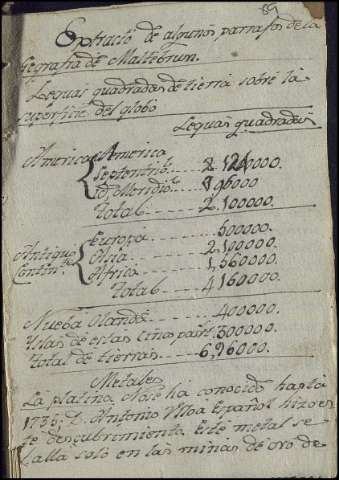 Extracto de algunos parrafos de la
Gografia de Maltebrun.
Leguas quadradas de tierra sobre la
superficie del globo
Leguas quadradas
America America
Septentril
id. Meridiol 896000
total 2.100000.
Antiguo Europa 500000.
Contin.te Asia 2.100000.
Africa 1,560000.
total 4,160000.
Nueba Olanda 400000.
Yslas de estas cinco part. 300000.
total de tierras 6,960000.
Metales
La platina no se ha conocido hasta
1735; D. Antonio Ulloa Español hizo es
te descubrimiento. Este metal se
alla solo en las minas de oro de